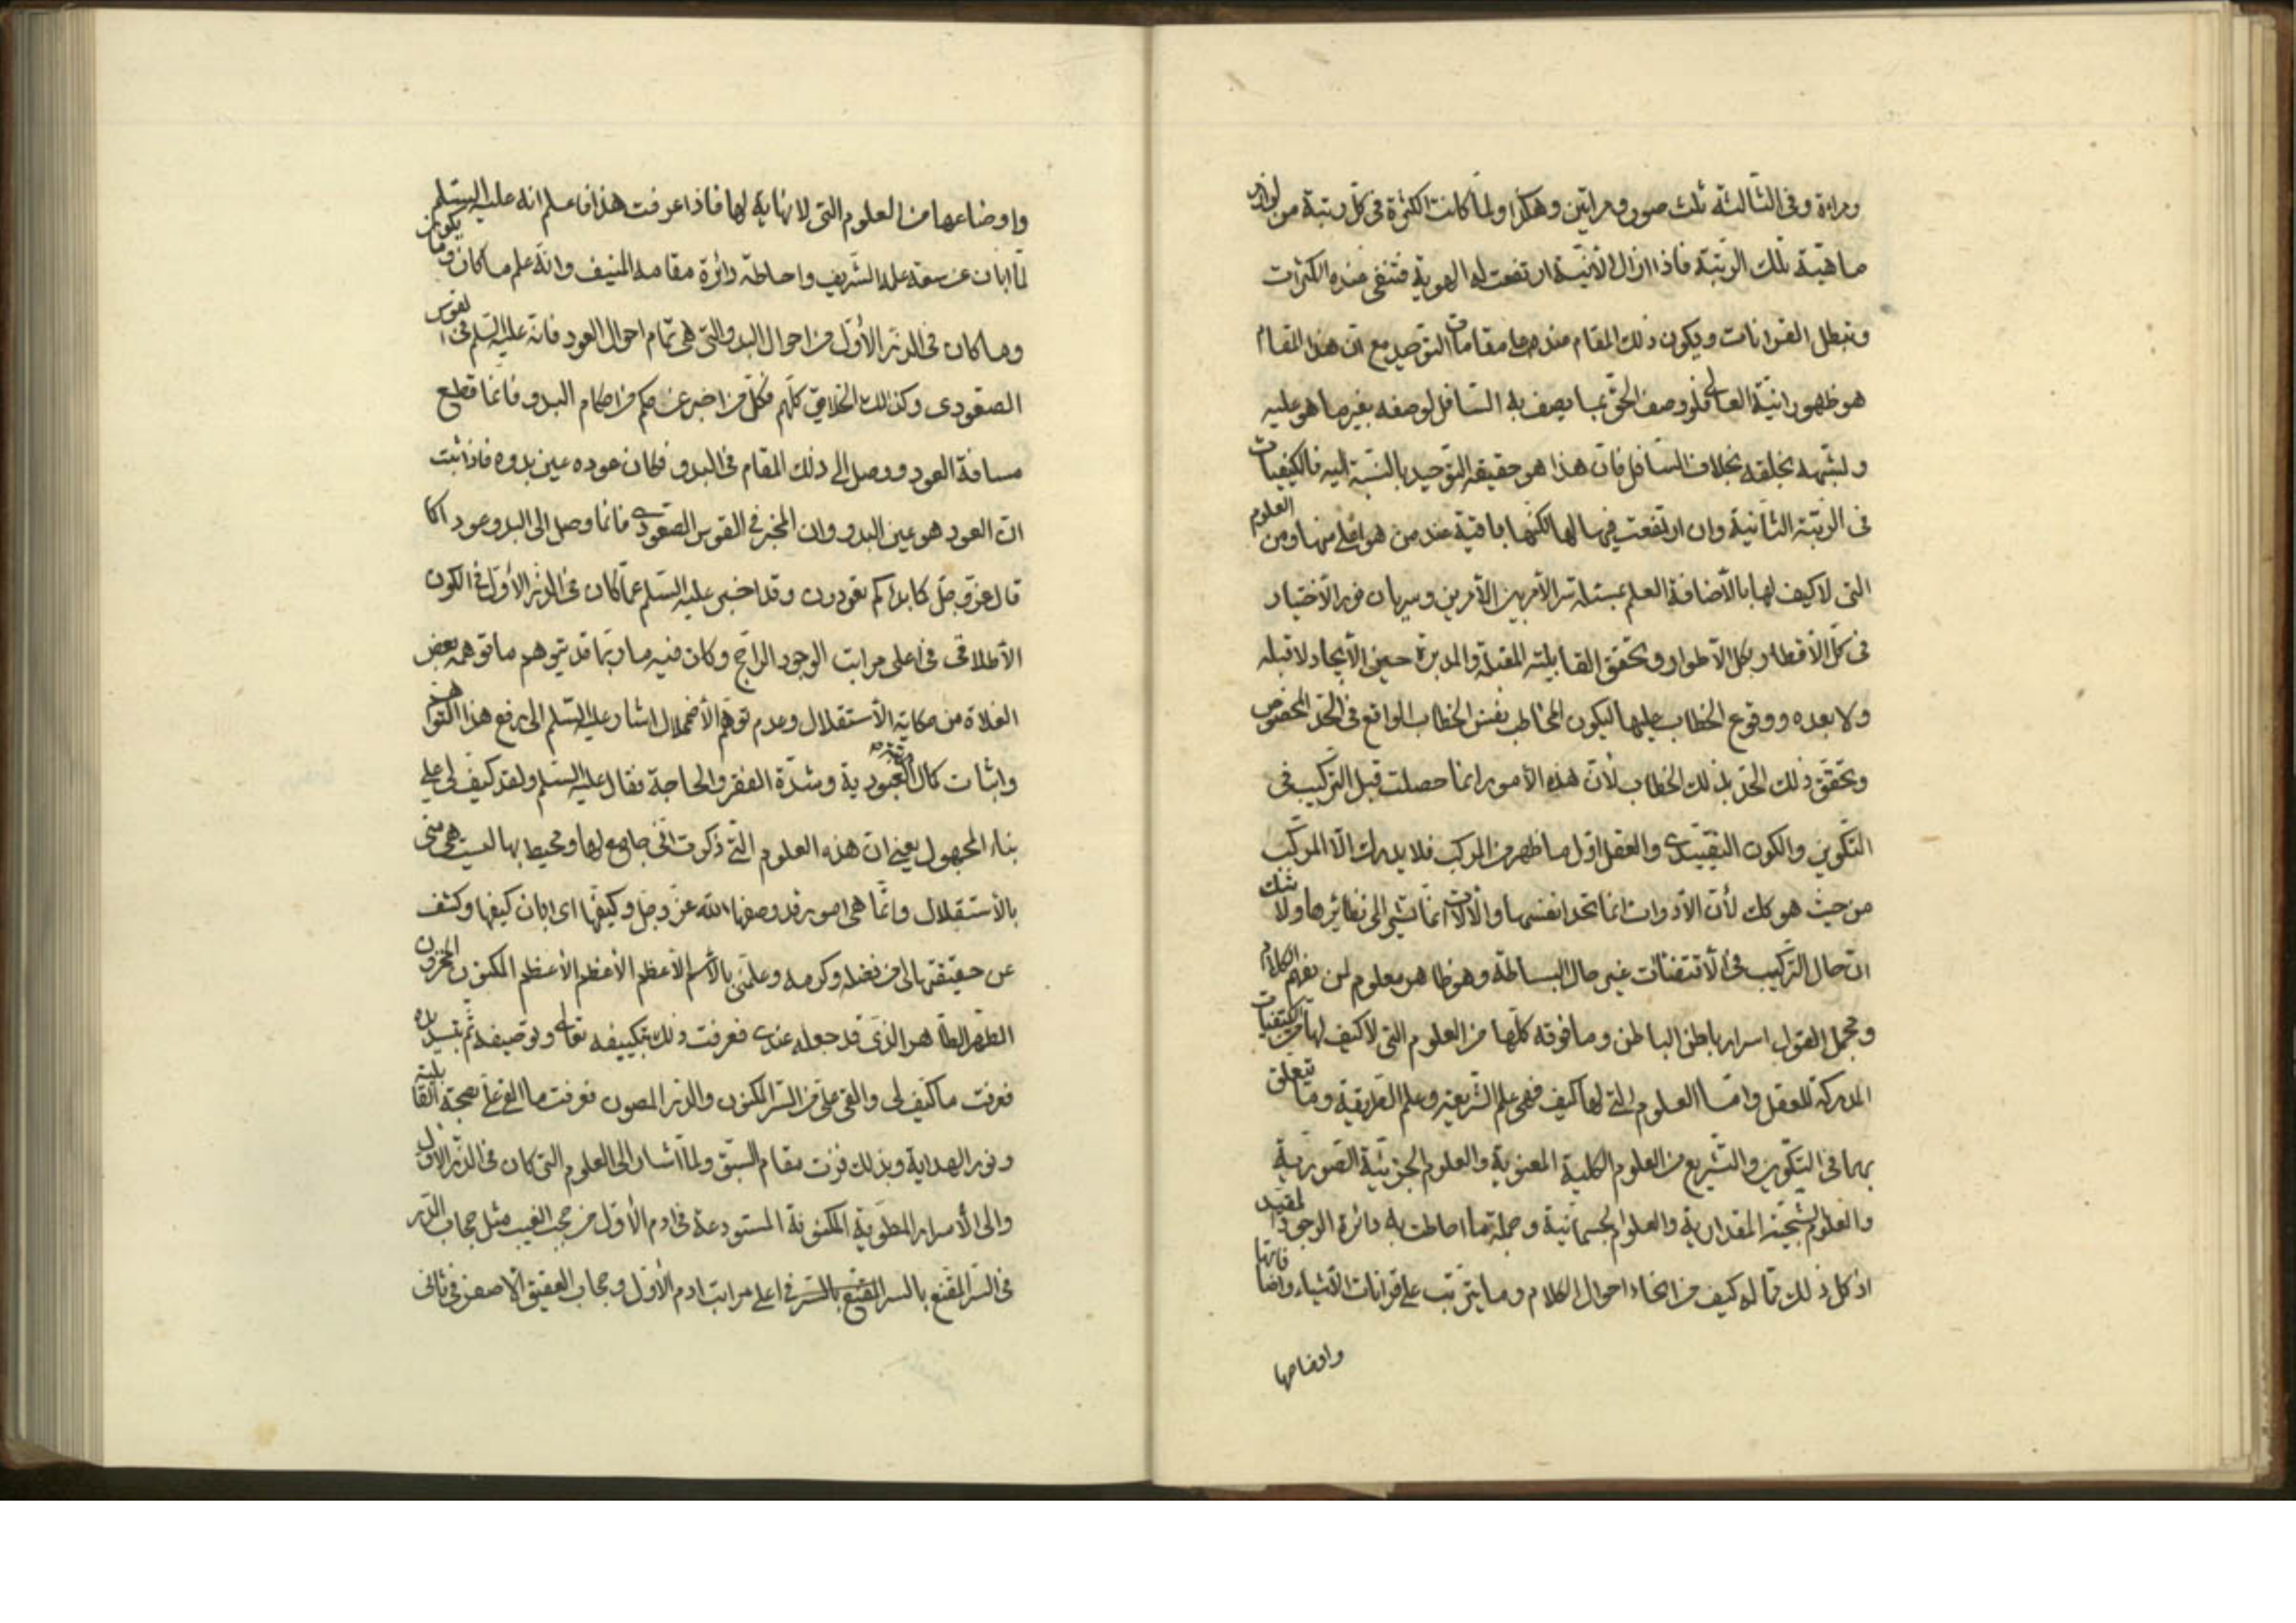 ومراءة وفى الثالثة ثلث صور ومراتين وهكذا ولما كانت الكثرة فى كل رتبة من لوازم
ماهية تلك الرتبة فاذا ازال الأنية ارتفعت له الهوية فتنفى عنده الكثرات
وتبطل القرانات ويكون ذلك المقام عنده مقامات التوحيد مع ان هذا المقام
هو ظهور انية العالى فلو وصف الحق بما يصف به السافل لوصفه بغير ما هو عليه
ولشبهه بخلقه بخلاف السافل فان هذا هو حقيقة التوحيد بالنسبة اليه فالكيفيات
فى الرتبة الثانية وان ارتفعت فيها لها لكنها باقية عند من هو اعلى منها ومن العلوم
التى لا كيف لها بالأضافة العلم بمسئلة سر الأمر بين الأمرين وسريان نور الأختيار
فى كل الأقطار وبكل الأطوار وتحقق القابلية المقبلة والمدبرة حين الأيجاد لا قبله
ولا بعده ووقوع الخطاب عليها ليكون المخاطب بنفس الخطاب الواقع فى الحد المخصوص
وتحقق ذلك الحد بذلك الخطاب لأن هذه الأمور انما حصلت قبل التركيب فى
التكوين والكون التقييدى والعقل اول ما ظهر من المركب فلا يدرك الا المركب
من حيث هو كك لأن الأدوات انما تحد انفسها والآلات انما تشير الى نظائرها ولا شك
ان حال التركيب فى الأقتضاات غير حال البساطة وهو ظاهر معلوم لمن يفهم الكلام
ومجمل القول اسرار باطن الباطن وما فوقه كلها من العلوم التى لا كيف لها من الكيفيات
المدركة للعقل واما العلوم التى لها كيف فهى علم الشريعة وعلم الطريقة وما يتعلق
بهما فى التكوين والتشريع من العلوم الكلية المعنوية والعلوم الجزئية الصورية
والعلوم الشبحية المقدارية والعلوم الجسمانية وجملة ما احاطت به دائرة الوجود المقيد
اذ كل ذلك مما له كيف من اتحاد احوال الكلام وما يترتب على قرانات الأشياء واضافاتها
واوضاعها
واوضاعها من العلوم التى لا نهاية لها فاذا عرفت هذا فاعلم انه عليه السلم
لما ابان عن سعة علمه الشريف واحاطة دائرة مقامه المنيف وانه علم ما كان وما يكون
وما كان فى الذر الأول من احوال البدو التى هى تمام احوال العود فانه عليه السلم فى القوس
الصعودى وكذلك الخلايق كلهم فكل من اخبر عن حكم من احكام البدو فانما قطع
مسافة العود ووصل الى ذلك المقام فى البدو فكان عوده عين بدوه فاذا ثبت
ان العود هو عين البدو وان المخبر فى القوس الصعودى فانما وصل الى البدو عودا كما
قال عز وجل كما بداكم تعودون وقد اخبر عليه السلم عما كان فى الذر الأول فى الكون
الأطلاقى فى اعلى مراتب الوجود الراجح وكان فيه ما ربما قد يتوهم ما توهمه بعض
الغلاة من مكانة الأستقلال وعدم توهم الأضمحلال اشار عليه السلم الى رفع هذا التوهم
واثبات كمال العبودية وشدة الفقر والحاجة فقال عليه السلم ولقد كيف لى على
بناء المجهول يعنى ان هذه العلوم التى ذكرت انى جامع لها ومحيط بها ليست هى منى
بالأستقلال وانما هى امور قد وصفها الله عز وجل وكيفها اى ابان كيفها وكشف
عن حقيقتها لى من فضله وكرمه وعلمنى بالاسم الأعظم الأعظم الأعظم المكنون المخزون
الطهر الطاهر الذى قد جعله عندى فعرفت ذلك بتكييفه تعالى وتوصيفه ثم بتسديده
فعرفت ما كيف لى والقى على من السر المكنون والذر المصون فعرفت ما القى على بصحة القابلية
ونور الهداية وبذلك فزت مقام السبق ولما اشار الى العلوم التى كان فى الذر الأول
والى الأسرار المطوية المكنونة المستودعة فى ادم الأول من حجب الغيب مثل حجاب الدر
فى السر المقنع بالسر المقنع بالسر فى اعلى مراتب ادم الأول وحجاب العقيق الاصفر فى ثانى